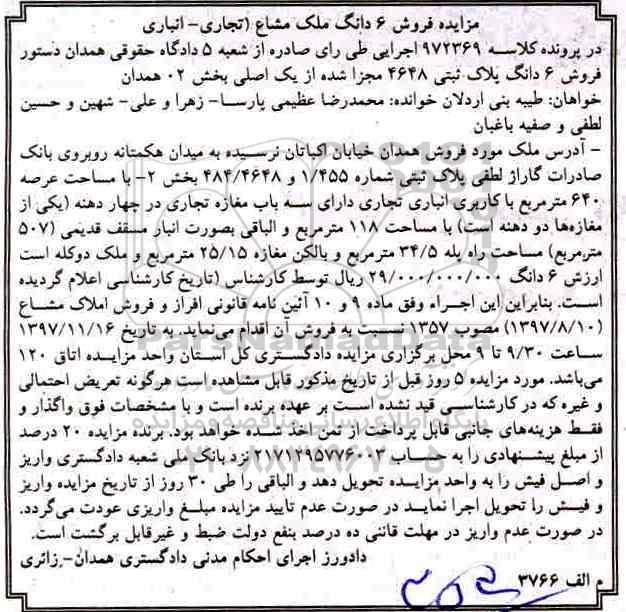 مزایده فروش ۶ دانگ ملک مشاع (تجاری- انباری
در پرونده کلاسه ۹۷۲۳۶۹ اجرایی طی رای صادره از شعبه ۵ دادگاه حقوقی همدان دستور
فروش ۶ دانگ پلاک ثبتی ۴۶۴۸ مجزا شده از یک اصلی بخش ۰۲ همدان
خواهان: طیبه بنی اردلان خوانده: محمدرضا عظیمی پارسا- زهرا و علی- شهین و حسین
لطفی و صفیه باغبان
- آدرس ملک مورد فروش همدان خیابان اکباتان نرسیده به میدان هکمتانه روبروی بانک
صادرات گاراژ لطفی پلاک ثبتی شماره ۱/۴۵۵ و ۴۸۴/۴۶۴۸ بخش ۲- با مساحت عرصه
۶۴۰ مترمربع با کاربری انباری تجاری دارای سه باب مغازه تجاری در چهار دهنه (یکی از
مغازه‌ها دو دهنه است) با مساحت ۱۱۸ مترمربع و الباقی بصورت انبار مسقف قدیمی (۵۰۷
مترمربع) مساحت راه پله ۳۴/۵ مترمربع و بالکن مغازه ۲۵/۱۵ مترمربع و ملک دوکله است
ارزش ۶ دانگ ۲۹/۰۰۰/۰۰۰/۰۰۰ ریال توسط کارشناس (تاریخ کارشناسی اعلام گردیده
است. بنابراین این اجراء وفق ماده ۹ و ۱۰ آئین نامه قانونی افراز و فروش املاک مشاع
(۱۳۹۷/۸/۱۰) مصوب ۱۳۵۷ نسبت به فروش آن اقدام می‌نماید. به تاریخ ۱۳۹۷/۱۱/۱۶
ساعت ۹/۳۰ تا ۹ محل برگزاری مزایده دادگستری کل استان واحد مزایده اتاق ۱۲۰
می‌باشد. مورد مزایده ۵ روز قبل از تاریخ مذکور قابل مشاهده است هرگونه تعریض احتمالی
و غیره که در کارشناسی قید نشده است بر عهده برنده است و با مشخصات فوق واگذار و
فقط هزینه‌های جانبی قابل پرداخت از ثمن اخذ شده خواهد بود. برنده مزایده ۲۰ درصد
از مبلغ پیشنهادی را به حساب ۲۱۷۱۲۹۵۷۷۶۰۰۳ نزد بانک ملی شعبه دادگستری واریز
و اصل فیش را به واحد مزایده تحویل دهد و الباقی را طی ۳۰ روز از تاریخ مزایده واریز
و فیش را تحویل اجرا نماید در صورت عدم تایید مزایده مبلغ واریزی عودت می‌گردد.
در صورت عدم واریز در مهلت قاننی ده درصد بنفع دولت ضبط و غیرقابل برگشت است.
دادورز اجرای احکام مدنی دادگستری همدان- زائری
م الف ۳۷۶۶
ParsNamadData